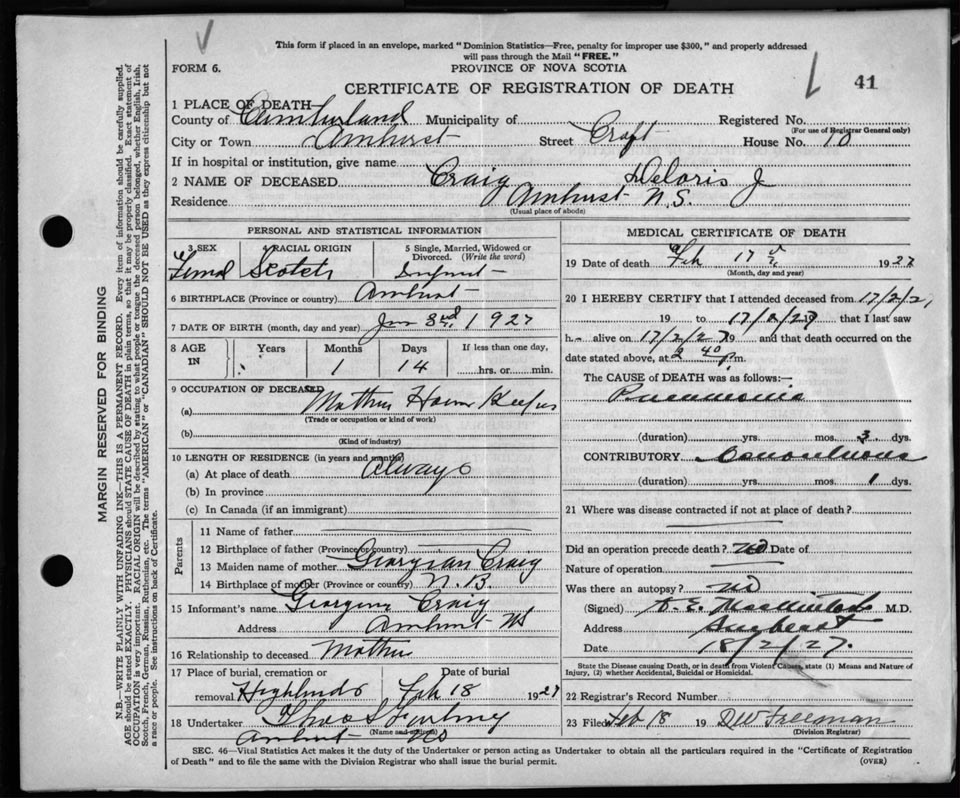 This form if placed in an envelope, marked "Dominion Statistics—Free, penalty for improper use $300," and properly addressed
will pass through the Mail "FREE."
FORM 6. PROVINCE OF NOVA SCOTIA
CERTIFICATE OF REGISTRATION OF DEATH 41
1 PLACE OF DEATH—
County of Cumberland Municipality of Registered No.
(For use of Registrar General only)
City or Town Amherst Street Croft House No. 10
If in hospital or institution, give name
2 NAME OF DECEASED Craig Deloris J
Residence Amherst N.S.
(Usual place of abode)
PERSONAL AND STATISTICAL INFORMATION
3 SEX 4 RACIAL ORIGIN 5 Single, Married, Widowed or
Divorced. (Write the word)
Femal Scotch Infant
6 BIRTHPLACE (Province or country) Amherst
7 DATE OF BIRTH (month, day and year) Jan 3rd 1927
8 AGE IN Years Months Days If less than one day,
1 14 hrs. or min.
9 OCCUPATION OF DECEASED
(a) Mother House Keeper
(Trade or occupation or kind of work)
(b)
(Kind of industry)
10 LENGTH OF RESIDENCE (in years and months)
(a) At place of death Always
(b) In province
(c) In Canada (if an immigrant)
Parents
11 Name of father
12 Birthplace of father (Province or country)
13 Maiden name of mother Georgian Craig
14 Birthplace of mother (Province or country) N.B.
15 Informant's name Georgina Craig
Address Amherst NS
16 Relationship to deceased Mother
17 Place of burial, cremation or Date of burial
removal Highlands Feb 18 1927
18 Undertaker Thos S
(Name and address)
Amherst NS
MEDICAL CERTIFICATE OF DEATH
19 Date of death Feb 17 1927
(Month, day and year)
20 I HEREBY CERTIFY that I attended deceased from 17/2/2
19 to 17/2/27 19 that I last saw
h alive on 17/2/27 19 and that death occurred on the
date stated above, at 2 40 p.m.
The CAUSE of DEATH was as follows:—
Pneumonia
(duration) yrs. mos. 3 dys.
CONTRIBUTORY Convulsions
(duration) yrs. mos. 1 dys.
21 Where was disease contracted if not at place of death?
Did an operation precede death? no Date of
Nature of operation
Was there an autopsy? no
(Signed) M.D.
Address Amherst
Date 18/2/27.
State the Disease causing Death, or in death from Violent Causes, state (1) Means and Nature of
Injury, (2) whether Accidental, Suicidal or Homicidal.
22 Registrar's Record Number
23 Filed Feb 18 19 DW Freeman
(Division Registrar)
SEC. 46—Vital Statistics Act makes it the duty of the Undertaker or person acting as Undertaker to obtain all the particulars required in the "Certificate of Registration
of Death" and to file the same with the Division Registrar who shall issue the burial permit. (OVER)
MARGIN RESERVED FOR BINDING
N.B.—WRITE PLAINLY WITH UNFADING INK—THIS IS A PERMANENT RECORD. Every item of information should be carefully supplied.
AGE should be stated EXACTLY. PHYSICIANS should STATE CAUSE OF DEATH in plain terms, so that it may be properly classified. Exact statement of
OCCUPATION is very important. RACIAL ORIGIN will be described by stating to what people or tongue the deceased person belonged, whether English, Irish,
Scotch, French, German, Russian, Ruthenian, etc. The terms "AMERICAN" or "CANADIAN" SHOULD NOT BE USED as they express citizenship but not
a race or people. See instructions on back of Certificate.